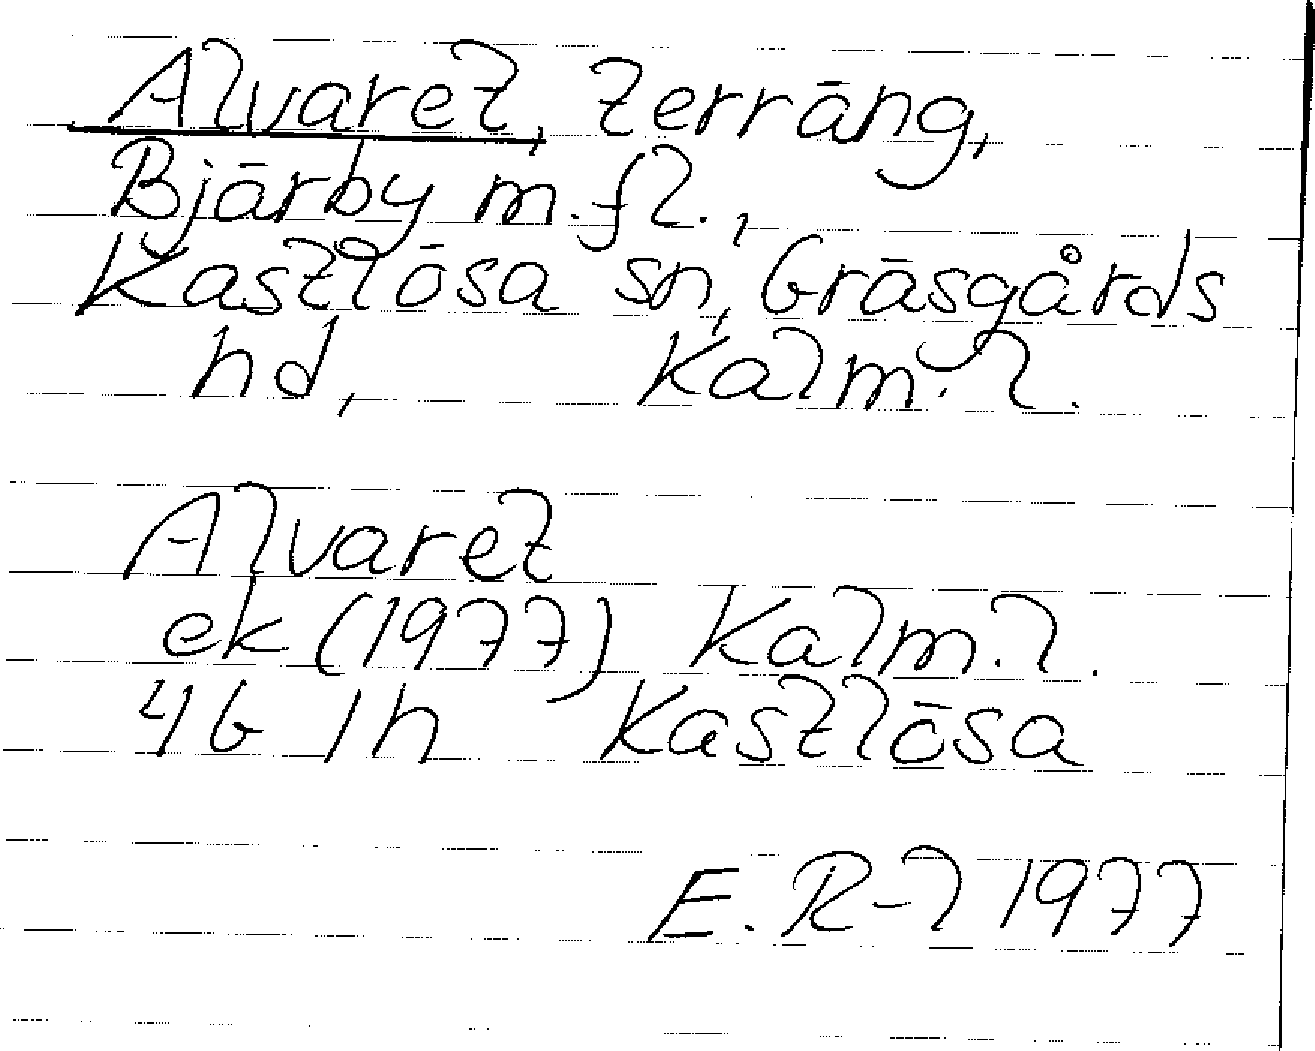 Alvaret, terräng,
Bjärby m.fl.,
Kastlösa sn, Gräsgårds
hd, Kalm. l.
Alvaret
ek (1977) Kalm. l.
4G 1h Kastlösa
E. R-l 1977